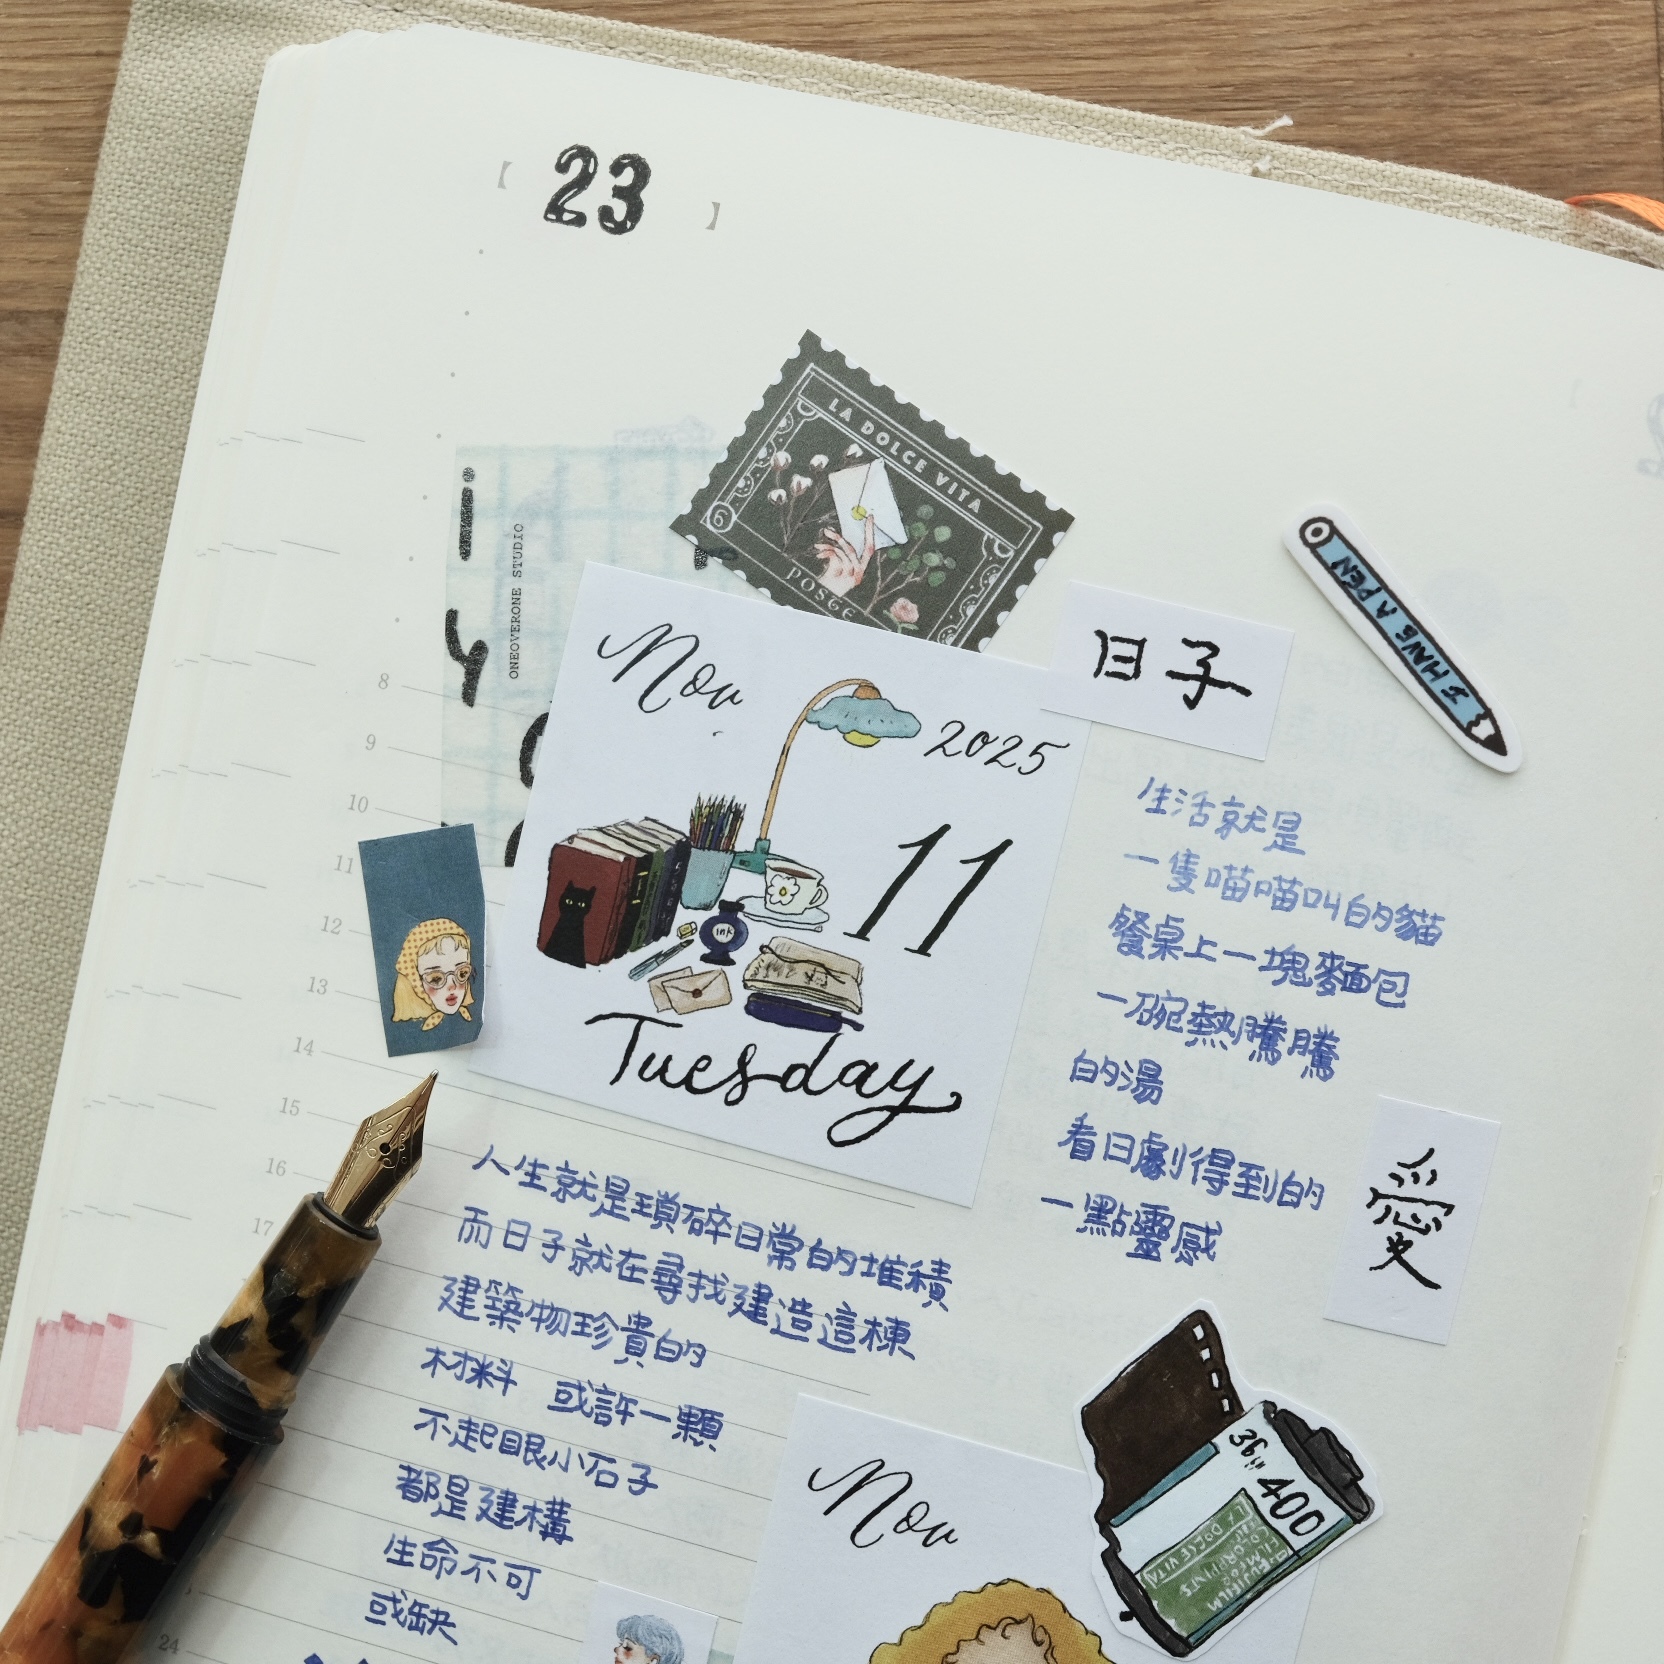 【 23 】
LA DOLCE VITA
6
POSTE
ONEOVERONE STUDIO
Nov
2025
11
ink
Tuesday
日子
I HAVE A PEN
生活就是
一隻喵喵叫的貓
餐桌上一塊麵包
一碗熱騰騰
的湯
看日劇得到的
一點靈感
愛
8
9
10
11
12
13
14
15
16
17
24
人生就是瑣碎日常的堆積
而日子就在尋找建造這棟
建築物珍貴的
材料 或許一顆
不起眼小石子
都是建構
生命不可
或缺
Nov
36
400
LA DOLCE VITA
FUJIFILM